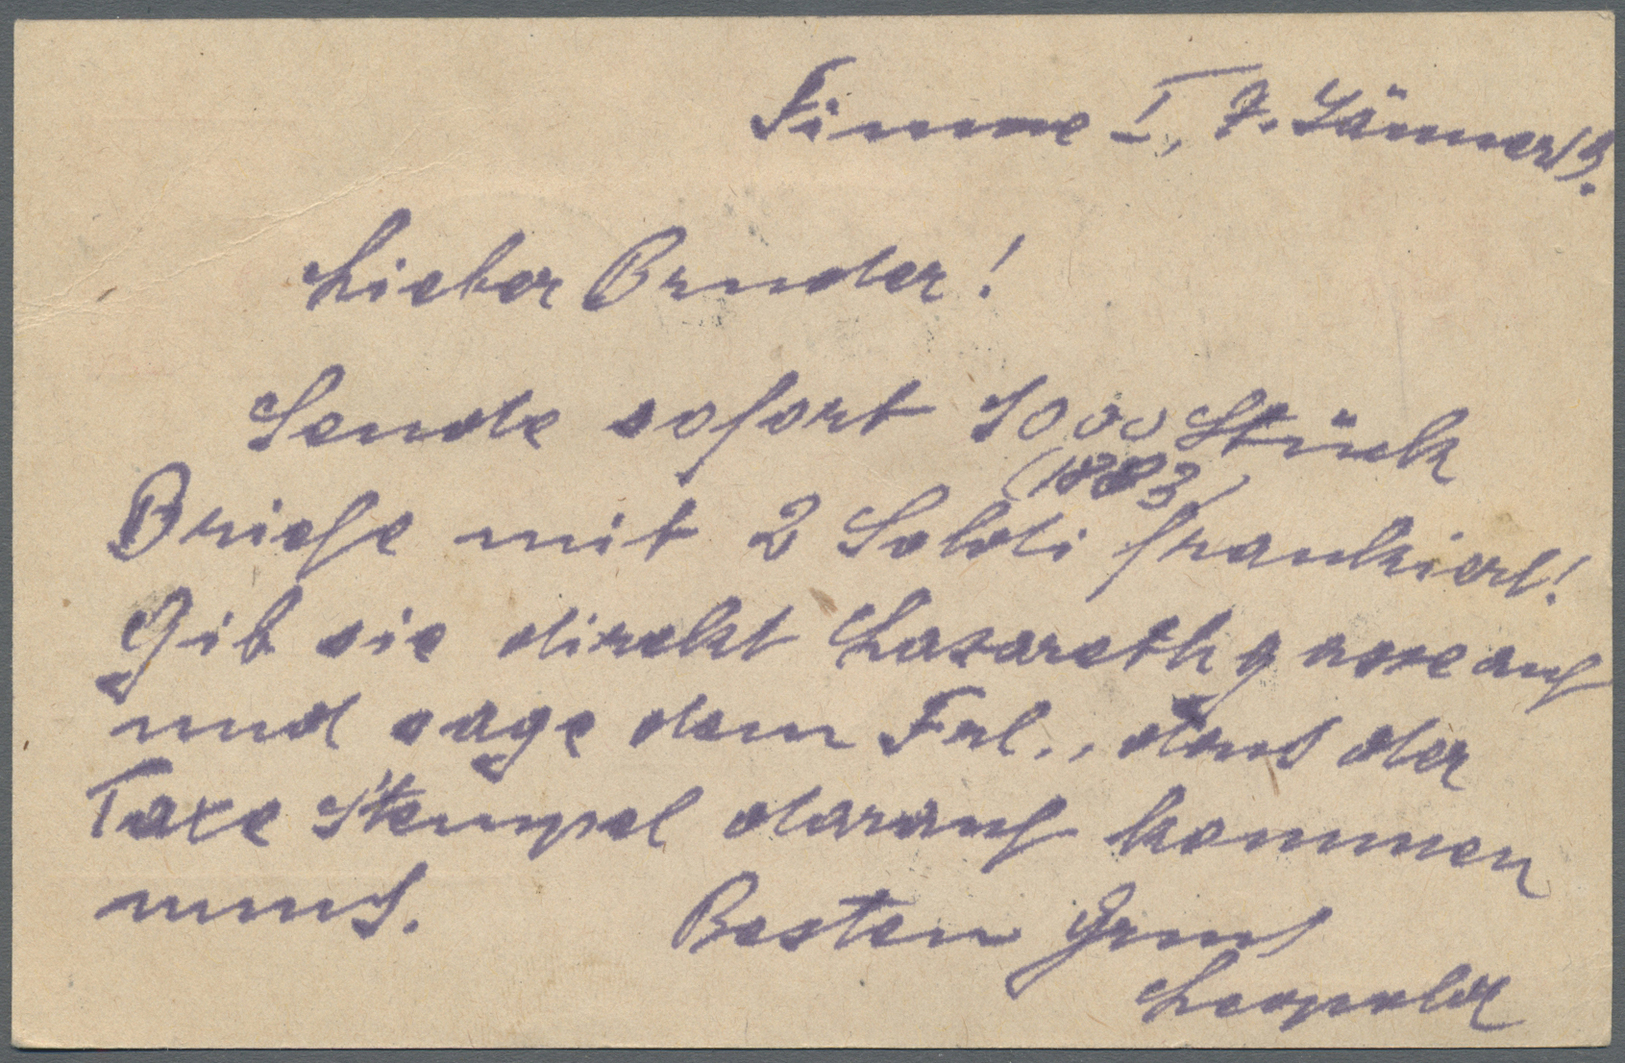 Fiume I, 7. Jänner 13.
Lieber Bruder!
Sende sofort 1000 Stück
(1883)
Briefe mit 2 Soldi frankiert!
Gib sie direkt Lazarethgasse auf
und sage dem Frl., dass der
Taxe Stempel darauf kommen
muss. Besten Gruss
Leopold